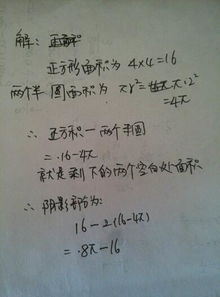 解:
正方形面积为 4×4=16
两个半圆面积为 πr²=π·2²
=4π
∴ 正方形-两个半圆
=16-4π
就是剩下的两个空白处面积
∴ 阴影部分为:
16-2(16-4π)
=8π-16